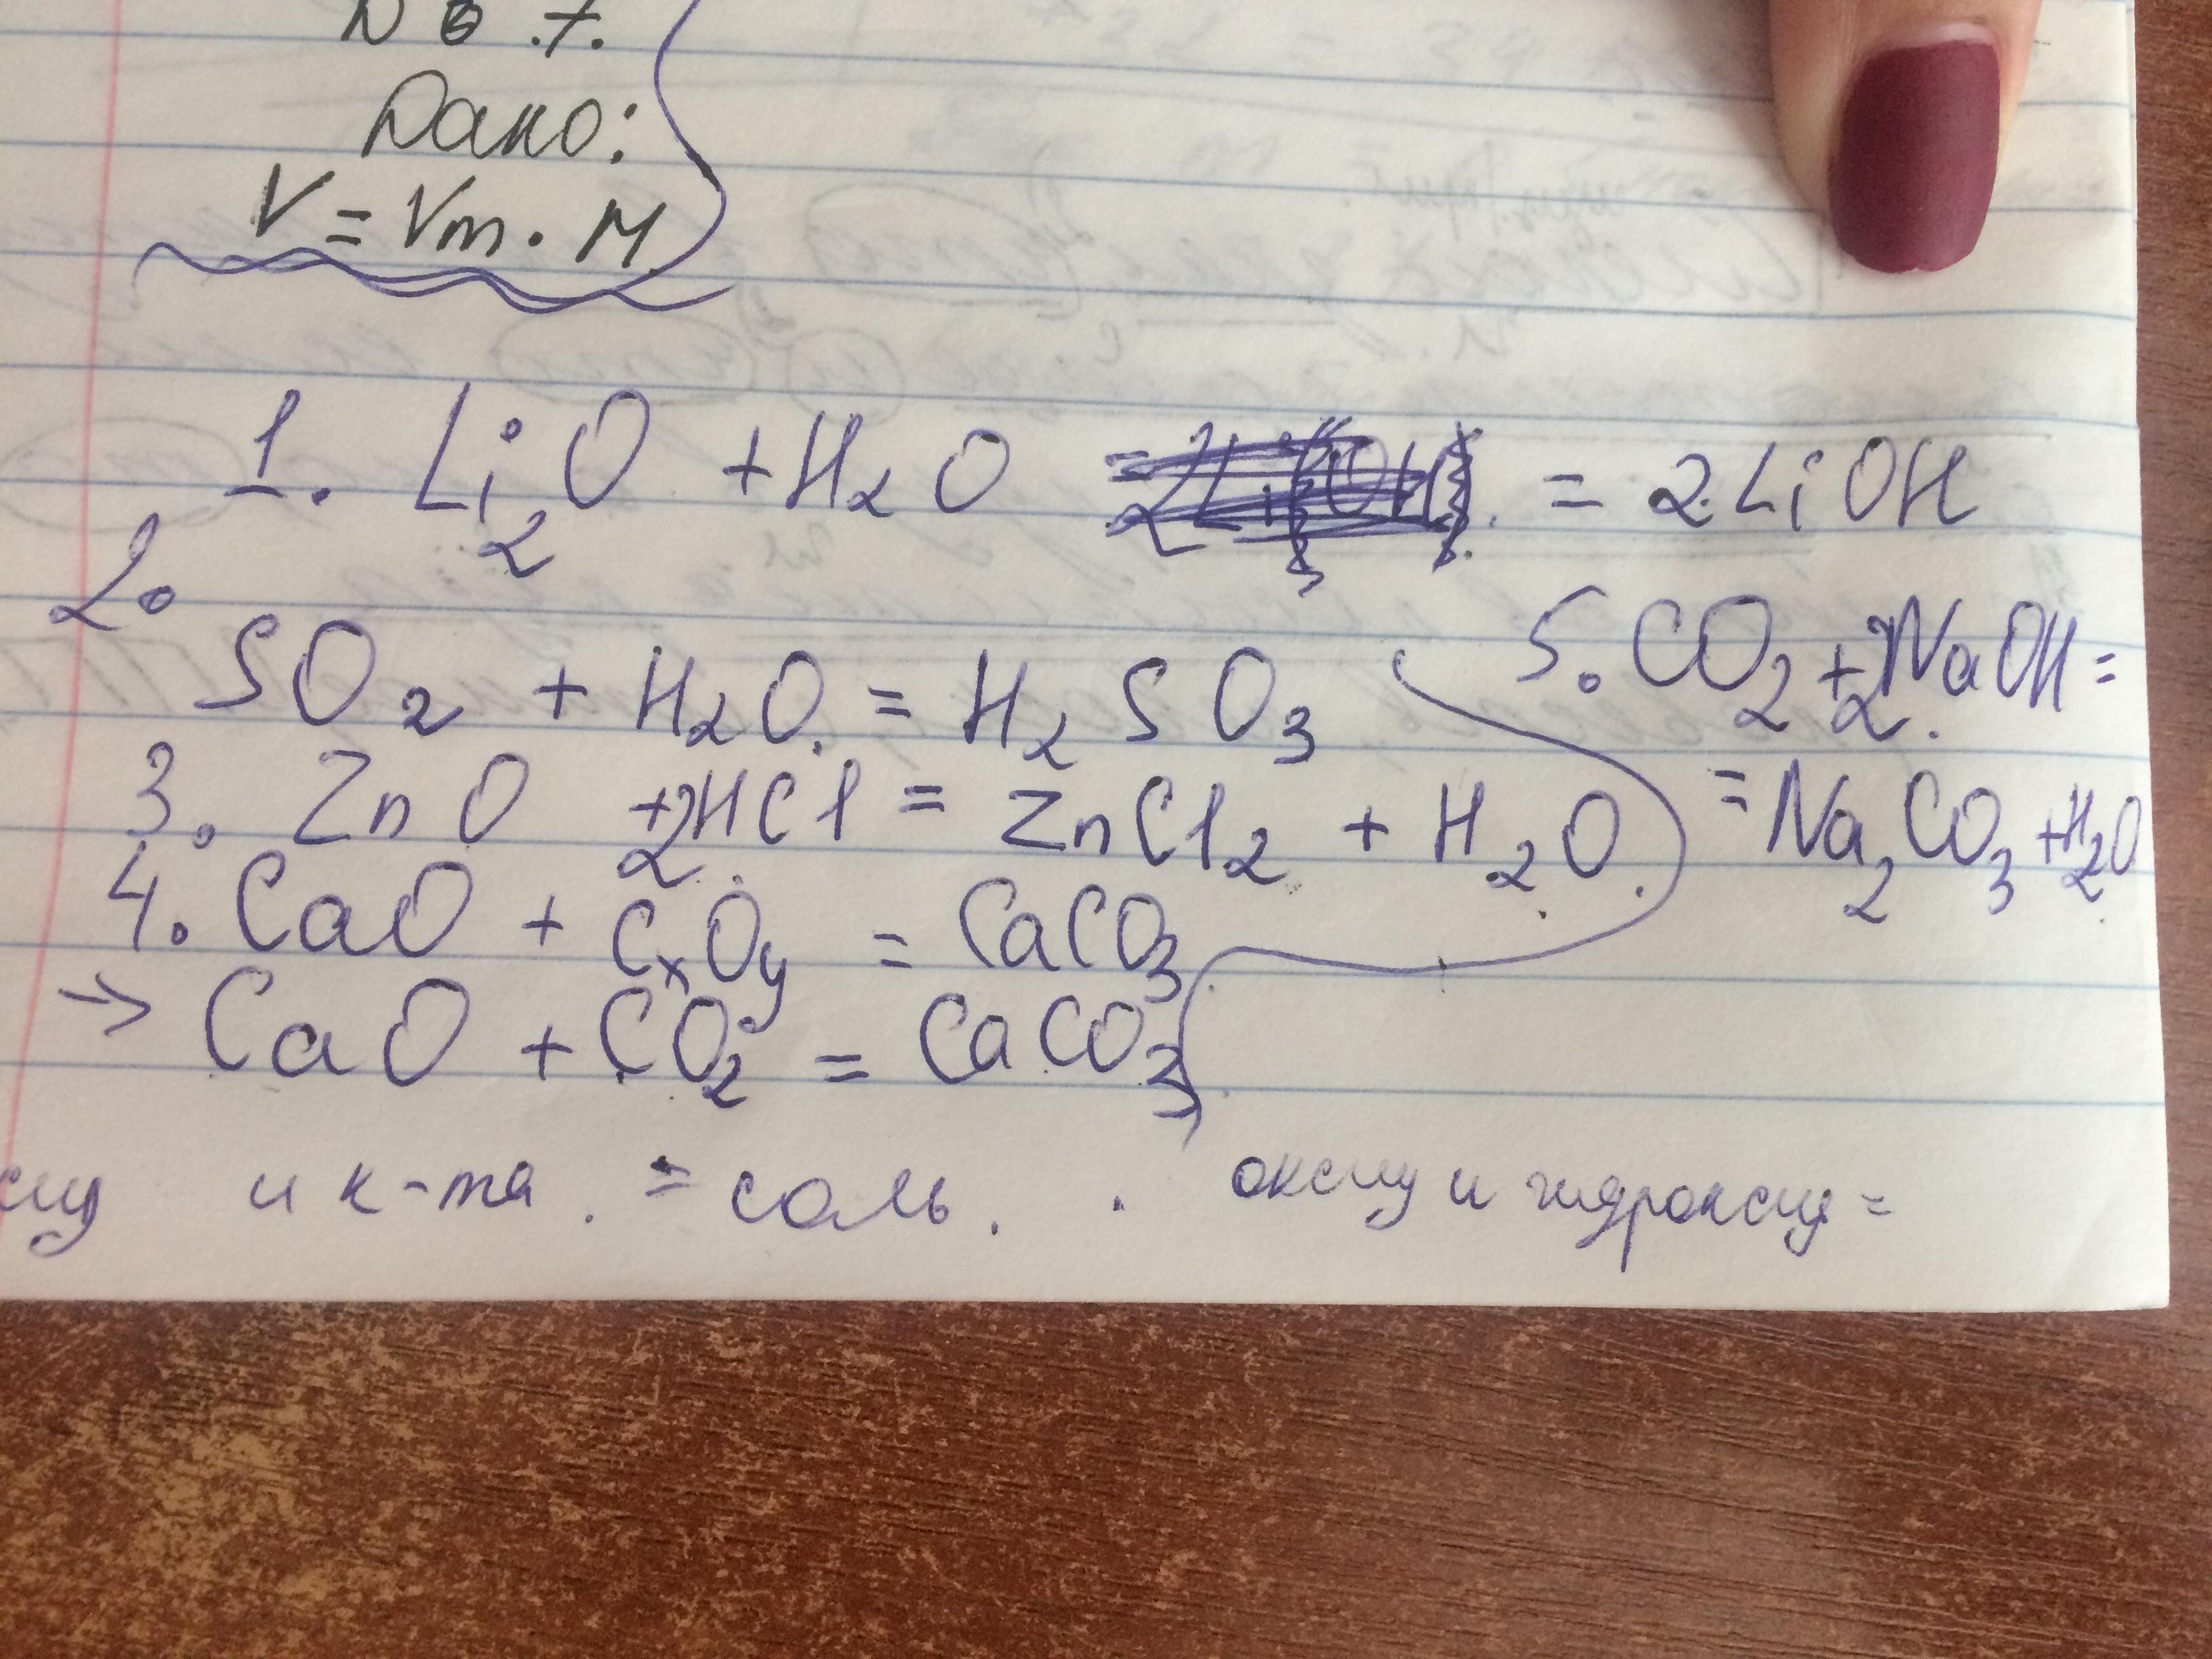 Дано:
V = Vm · M
1. Li₂O + H₂O = 2LiOH
2. SO₂ + H₂O = H₂SO₃
3. ZnO + 2HCl = ZnCl₂ + H₂O
4. CaO + CₓOᵧ = CaCO₃
→ CaO + CO₂ = CaCO₃
5. CO₂ + 2NaOH =
= Na₂CO₃ + H₂O
и к-та = соль.
оксид и гидроксид =